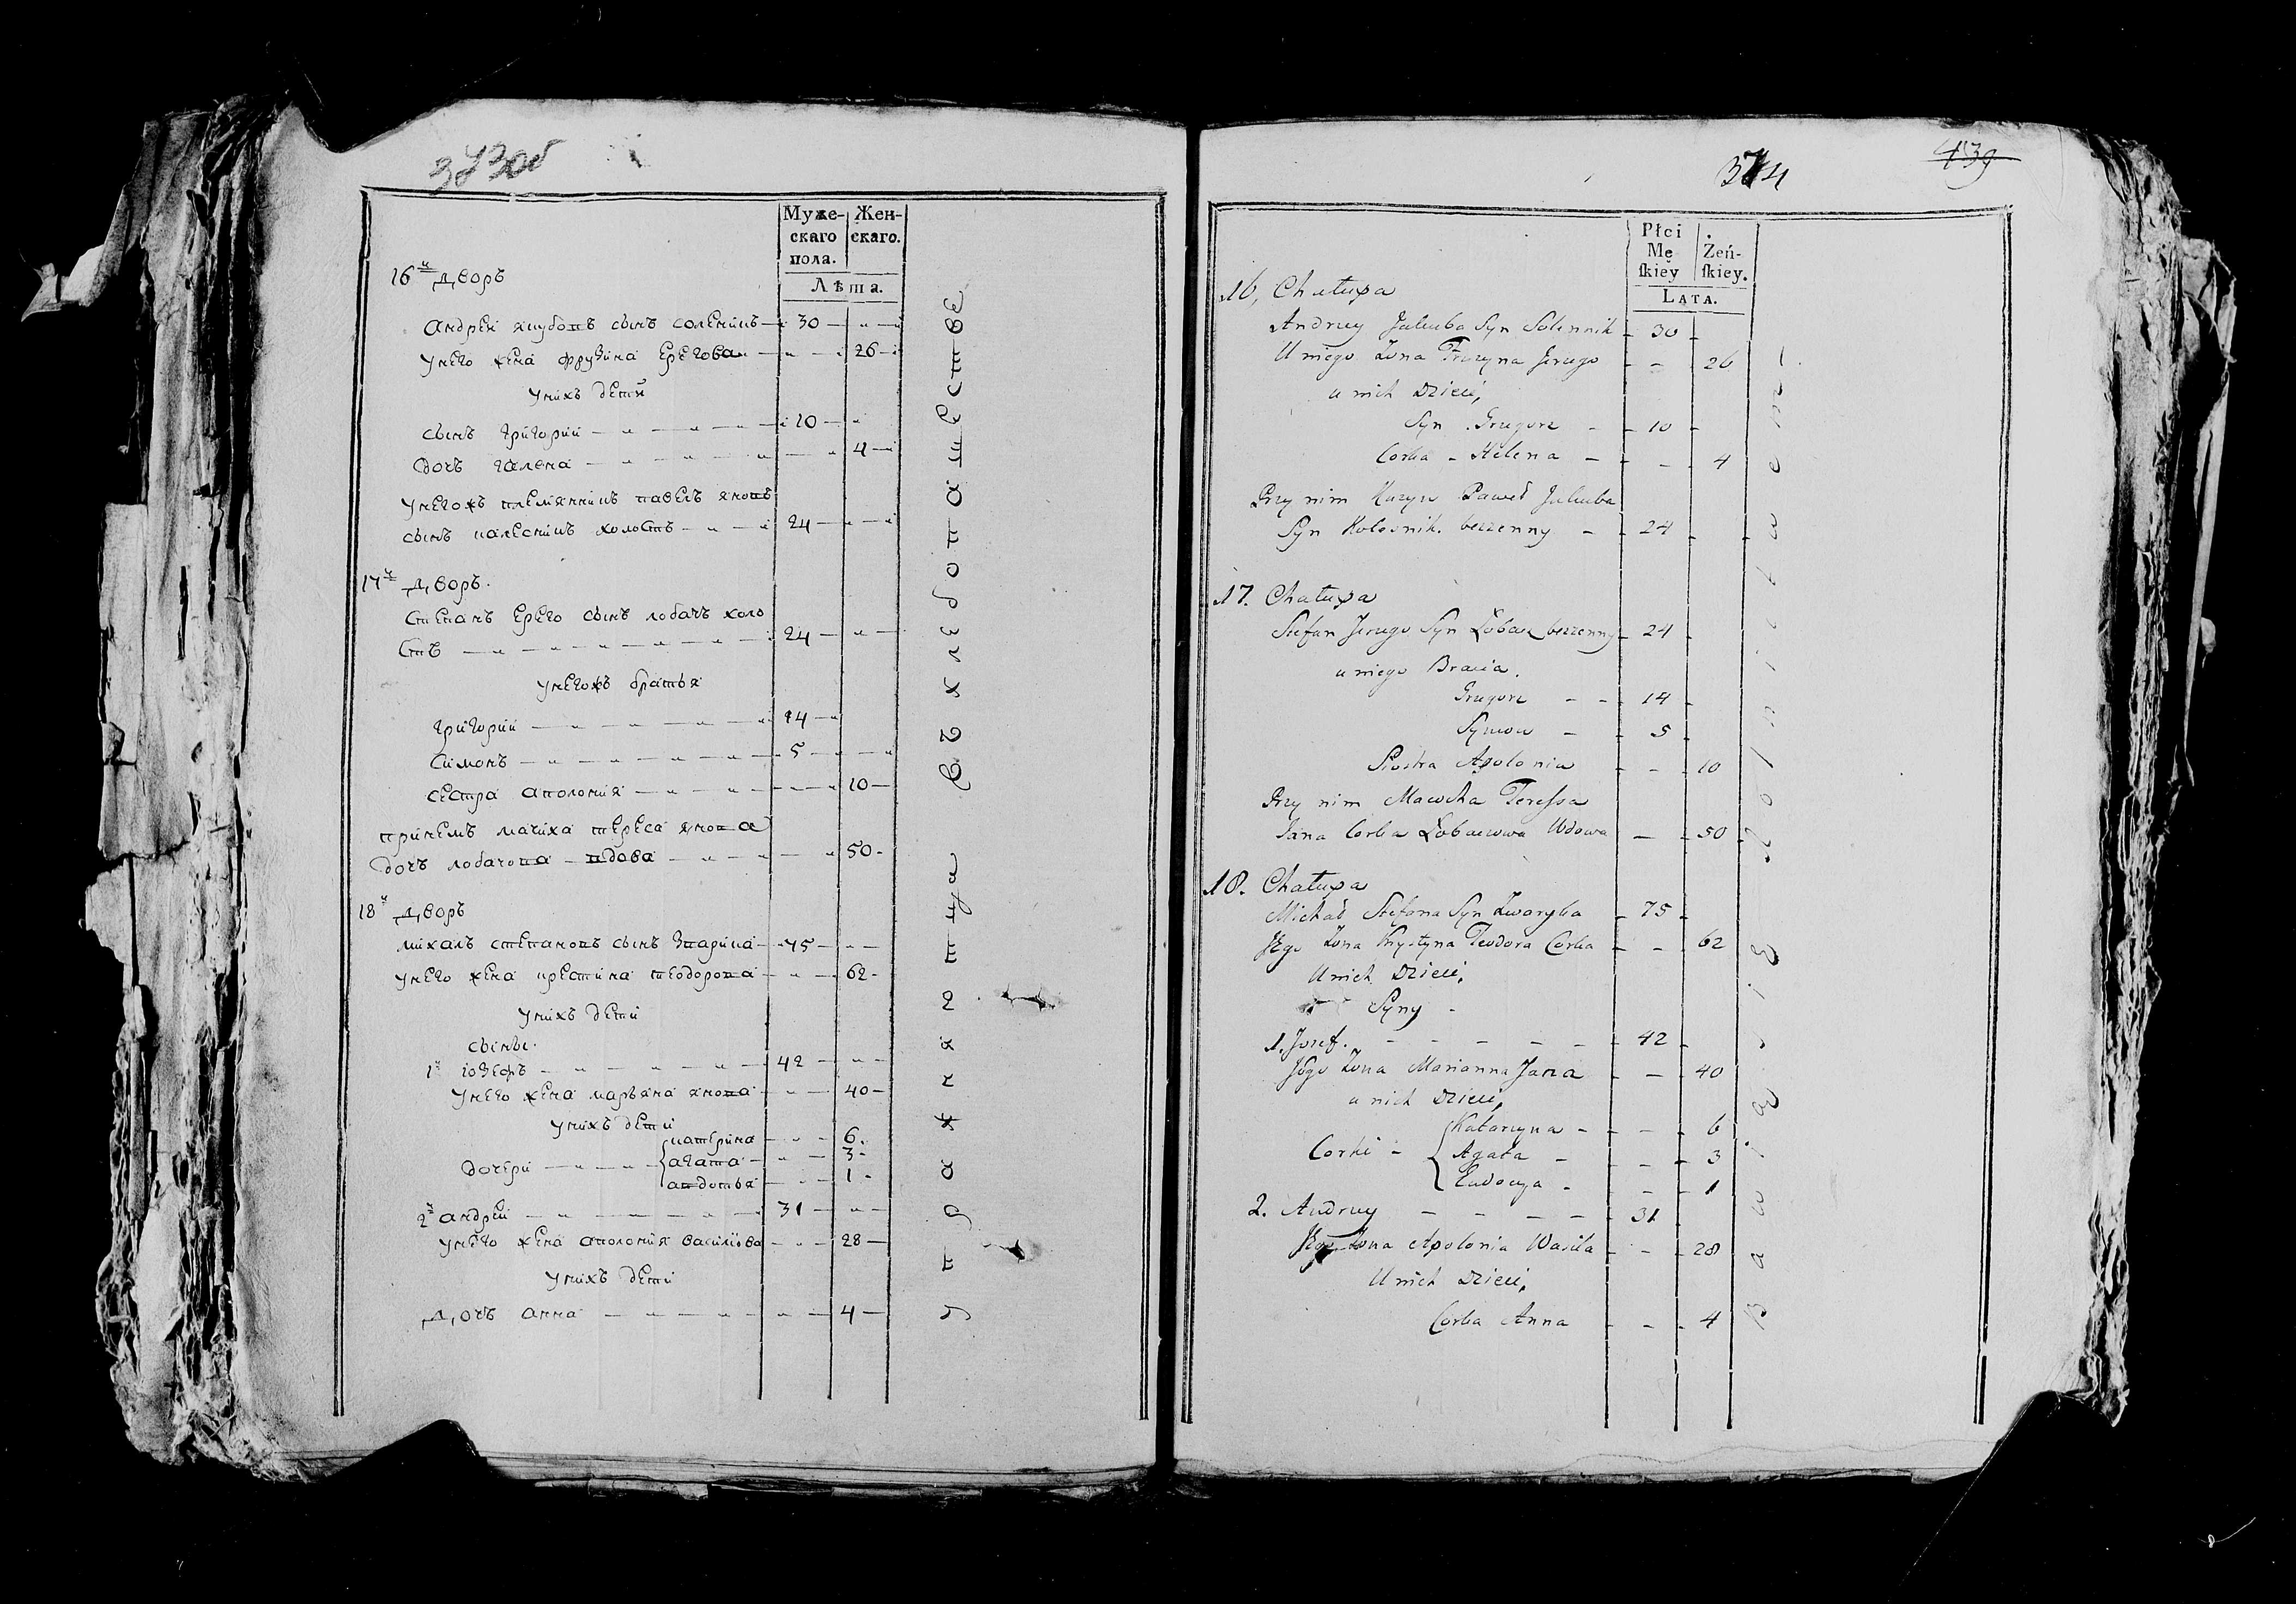 373об
Муже-
скаго
пола.
Жен-
скаго.
Лѣта.
16й дворъ
Андреи якубовъ сынъ соленикъ 30
унего жена фрузина ерегова 26
унихъ дети
сынъ григории 10
дочъ галена 4
унегожъ племянникъ павелъ яковъ
сынъ колесникъ холостъ 24
17й дворъ.
степанъ ерего сынъ лобачъ холо
стъ 24
унегожъ братья
григории 14
симонъ 5
сестра аполония 10
принемъ мачиха тереса янова
дочъ лобачова вдова 50
18й дворъ
михалъ степановъ сынъ зварика 75
унего жена крестина теодорова 62
унихъ дети
сыны.
1й юзефъ 42
унего жена марьяна янова 40
унихъ дети
дочери
катерина 6.
агата 3
авдотья 1
2й андреи 31
унего жена аполония василюва 28
унихъ дети
дочъ анна 4
374
439
Płci
Mę
skiey
Żeń-
skiey.
LATA.
16, Chałupa
Andrzey Jakuba Syn Solennik 30
U niego Żona Fruzyna Jerzego 26
u nich Dzieci,
Syn Grzegorz 10
Corka Helena 4
Przy nim Kuzyn Paweł Jakuba
Syn Kolesnik bezżenny 24
17. Chałupa
Stefan Jerzego Syn Łobacz bezżenny 24
u niego Bracia.
Grzegorz 14
Symon 5
Siostra Apolonia 10
Przy nim Macocha Teressa
Jana Corka Łobaczowa Wdowa 50
18. Chałupa
Michał Stefana Syn Zwaryka 75
Jego Żona Krystyna Teodora Corka 62
U nich Dzieci,
Syny
1. Jozef. 42
Jego Żona Marianna Jana 40
u nich Dzieci,
Corki
Katarzyna 6
Agata 3
Eudocya 1
2. Andrzey 31
Jego Żona Apolonia Wasila 28
U nich Dzieci,
Corka Anna 4